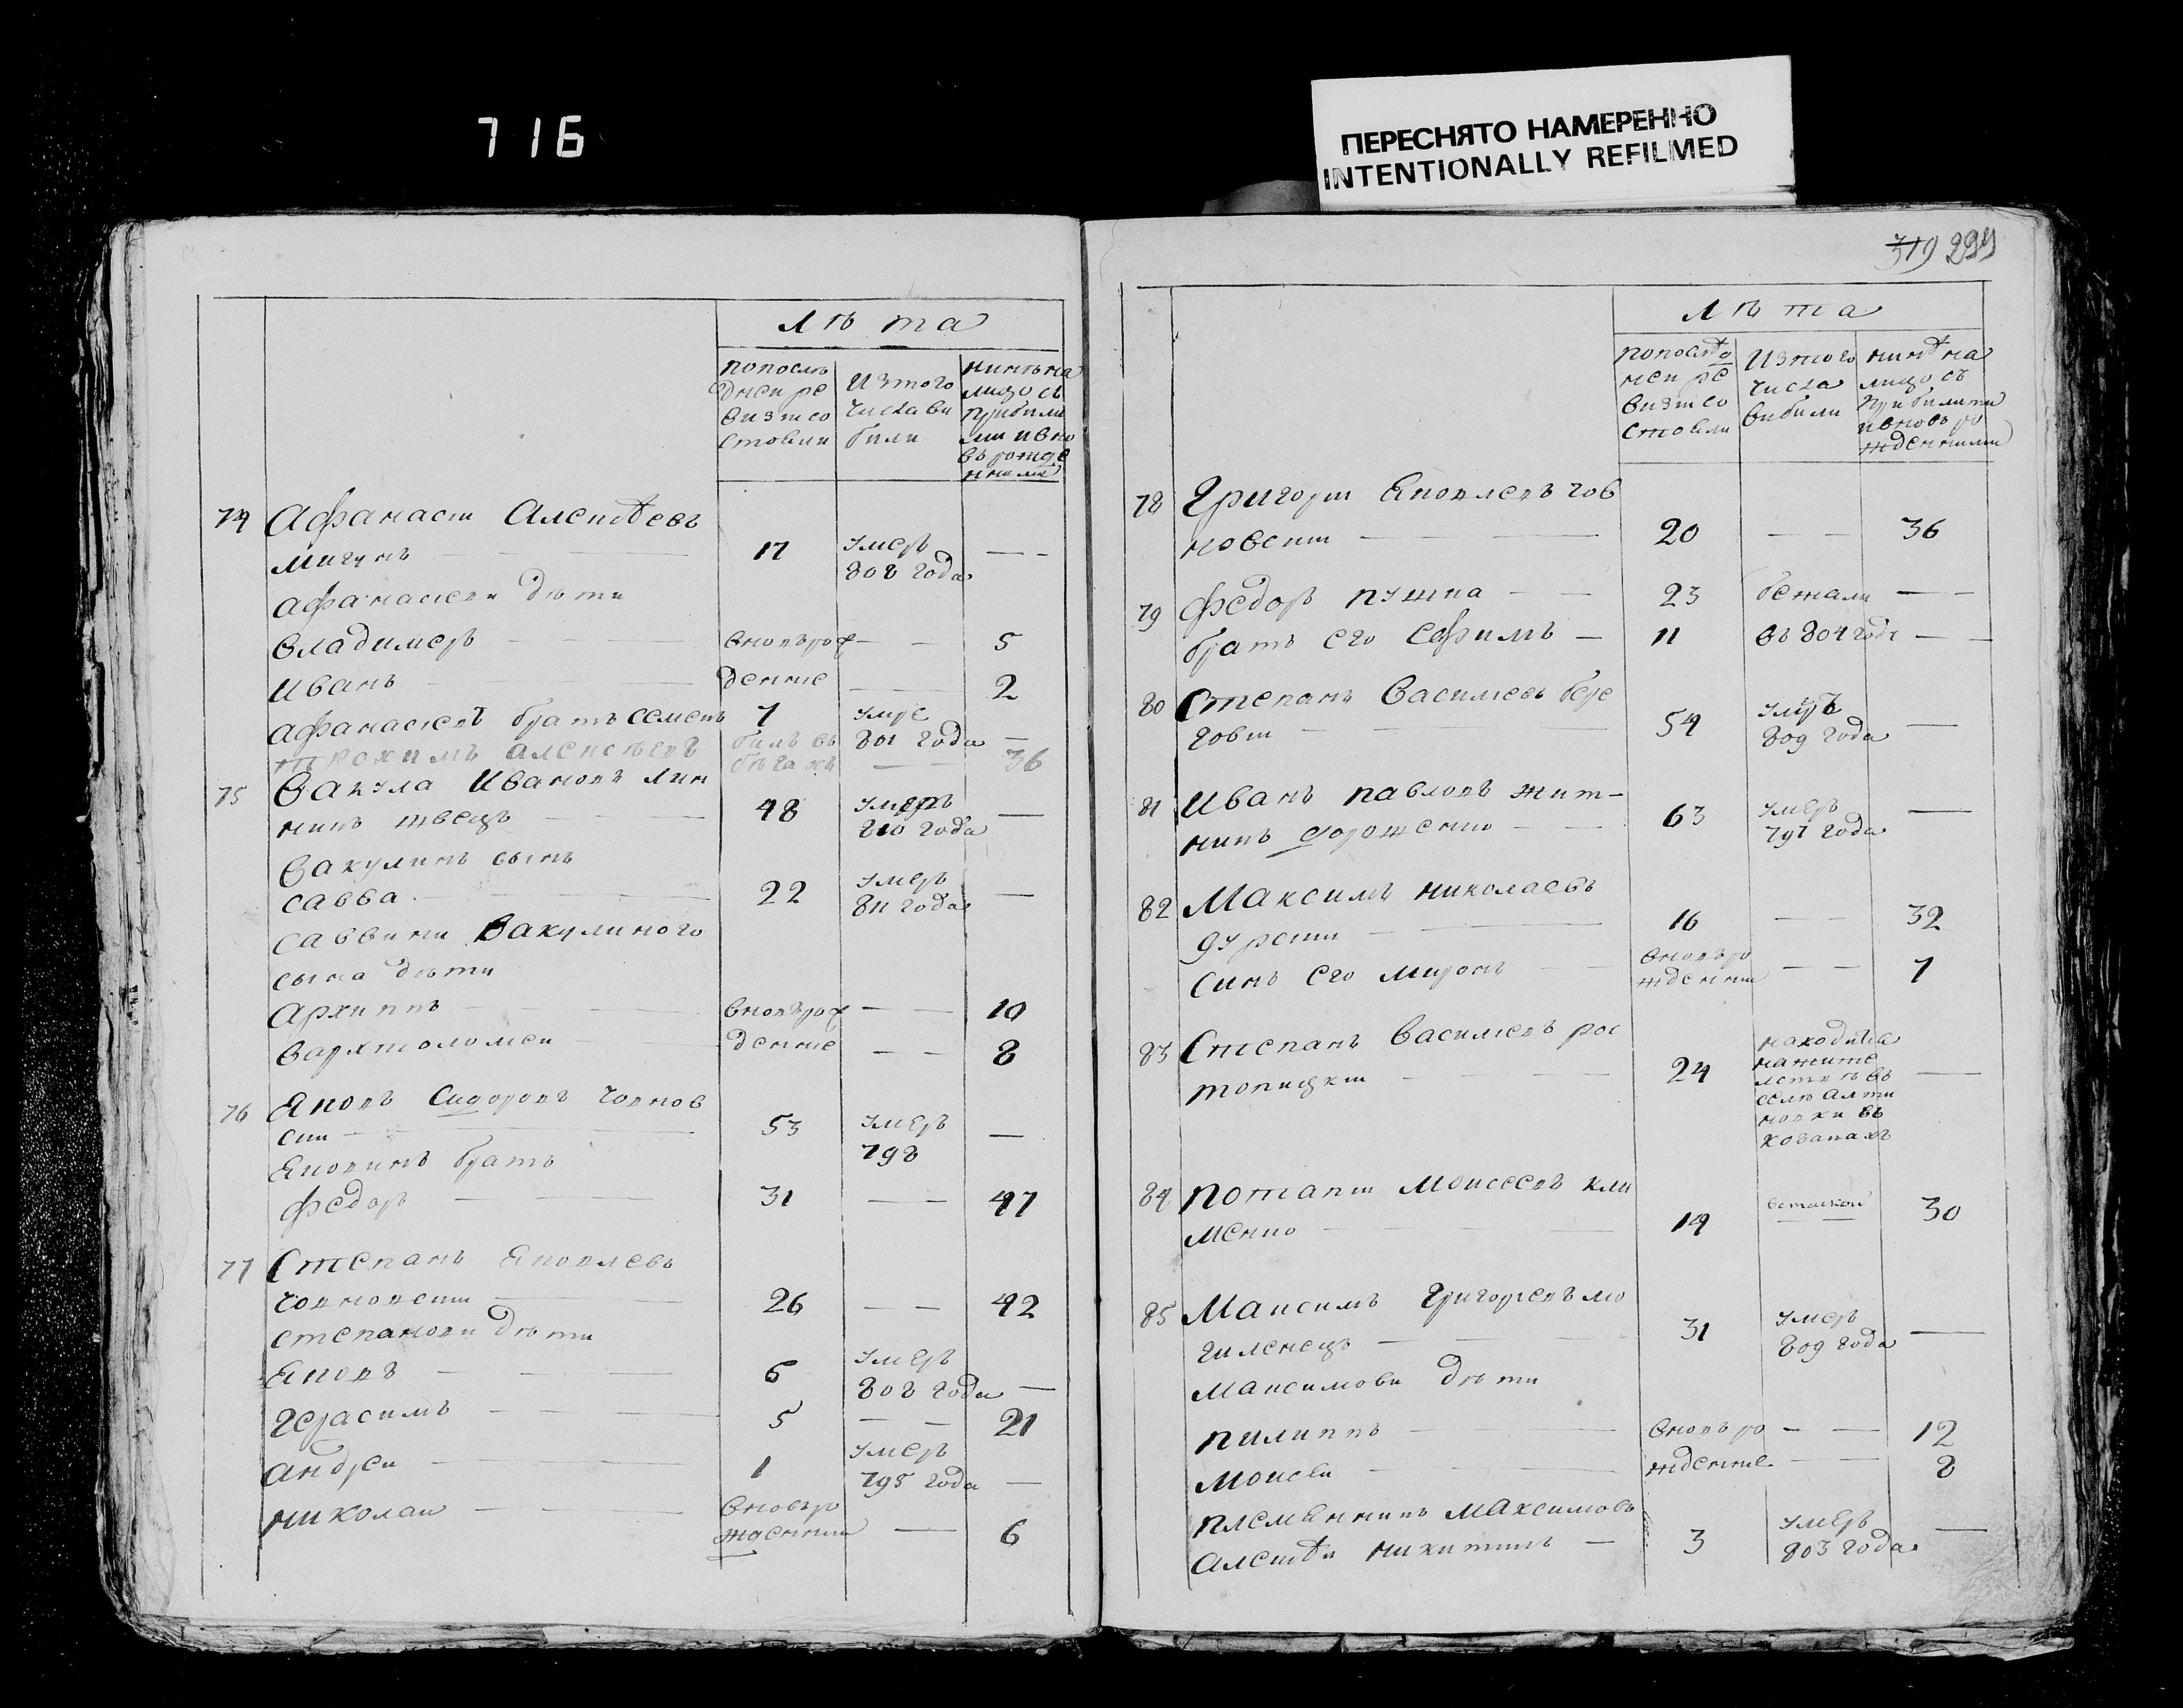 716
ПЕРЕСНЯТО НАМЕРЕННО
INTENTIONALLY REFILMED
319 299
Лѣта
попослѣ
дней ре
визисо
стояли
Изтого
числави
били
нинѣна
лицо съ
прибили
ми ивно
въ рожде
нними
74 Афанасии Алексѣевъ
мигунъ — 17 умеръ 808 года — -
Афанасиеви дѣти
Владимеръ — вновърож — — 5
Иванъ — дение — 2
Афанасиевъ братъ Семенъ 7 умре 801 года —
Трохимъ Алексѣевъ билъ въ бѣгахъ — — 36
75 Вакула Ивановъ Лин
никъ швецъ — 48 умеръ 810 года —
Вакулинъ сынъ
Савва — 22 умеръ 811 года —
Саввини Вакулиного
сына дѣти
Архиппъ — вновърож — — 10
Вархтоломеи — дение — — 8
76 Яковъ Сидоровъ Човнов
сии — 53 умеръ 798 —
Яковинъ братъ
Федоръ — — 31 — — 47
77 Степанъ Яковлевъ
човновсии — 26 — — 42
Степанови дѣти
Яковъ — 6 умеръ 808 года —
Герасимъ — 5 — — 21
Андреи — 1 умеръ 795 года —
Николаи — вновъро жденнии — 6
Лѣта
попослѣд
неи ре
визисо
стояли
Изтого
числа
вибили
нинѣ на
лицо съ
прибилими
ивновъ ро
жденними
78 Григории Яковлевъ чов
новсии — 20 — — 36
79 Федоръ пушка — — 23 бежали — —
братъ его Ефимъ — 11 въ 804 годе — —
80 Степанъ Василиевъ бере
говии — 54 умръ 809 года —
81 Иванъ Павловъ жит-
никъ — 63 умеръ 797 года —
82 Максимъ Николаевъ
— 16 — — 32
синъ его Миронъ — — вновъро жденнии — — 7
83 Степанъ Василиевъ рос
топицкии — 24 находитца
нажите
лствѣ въ
селѣ
въ
козакахъ —
84 Потапии Моисеевъ кли
менко — 14 — 30
85 Максимъ Григориевъ мо
гиленецъ — 31 умеръ 809 года —
Максимови дѣти
Пилиппъ — вновъро — — 12
Моисеи — ждение — — 8
племянникъ Максимовъ
Алексѣи Никитинъ — 3 умеръ 803 года —